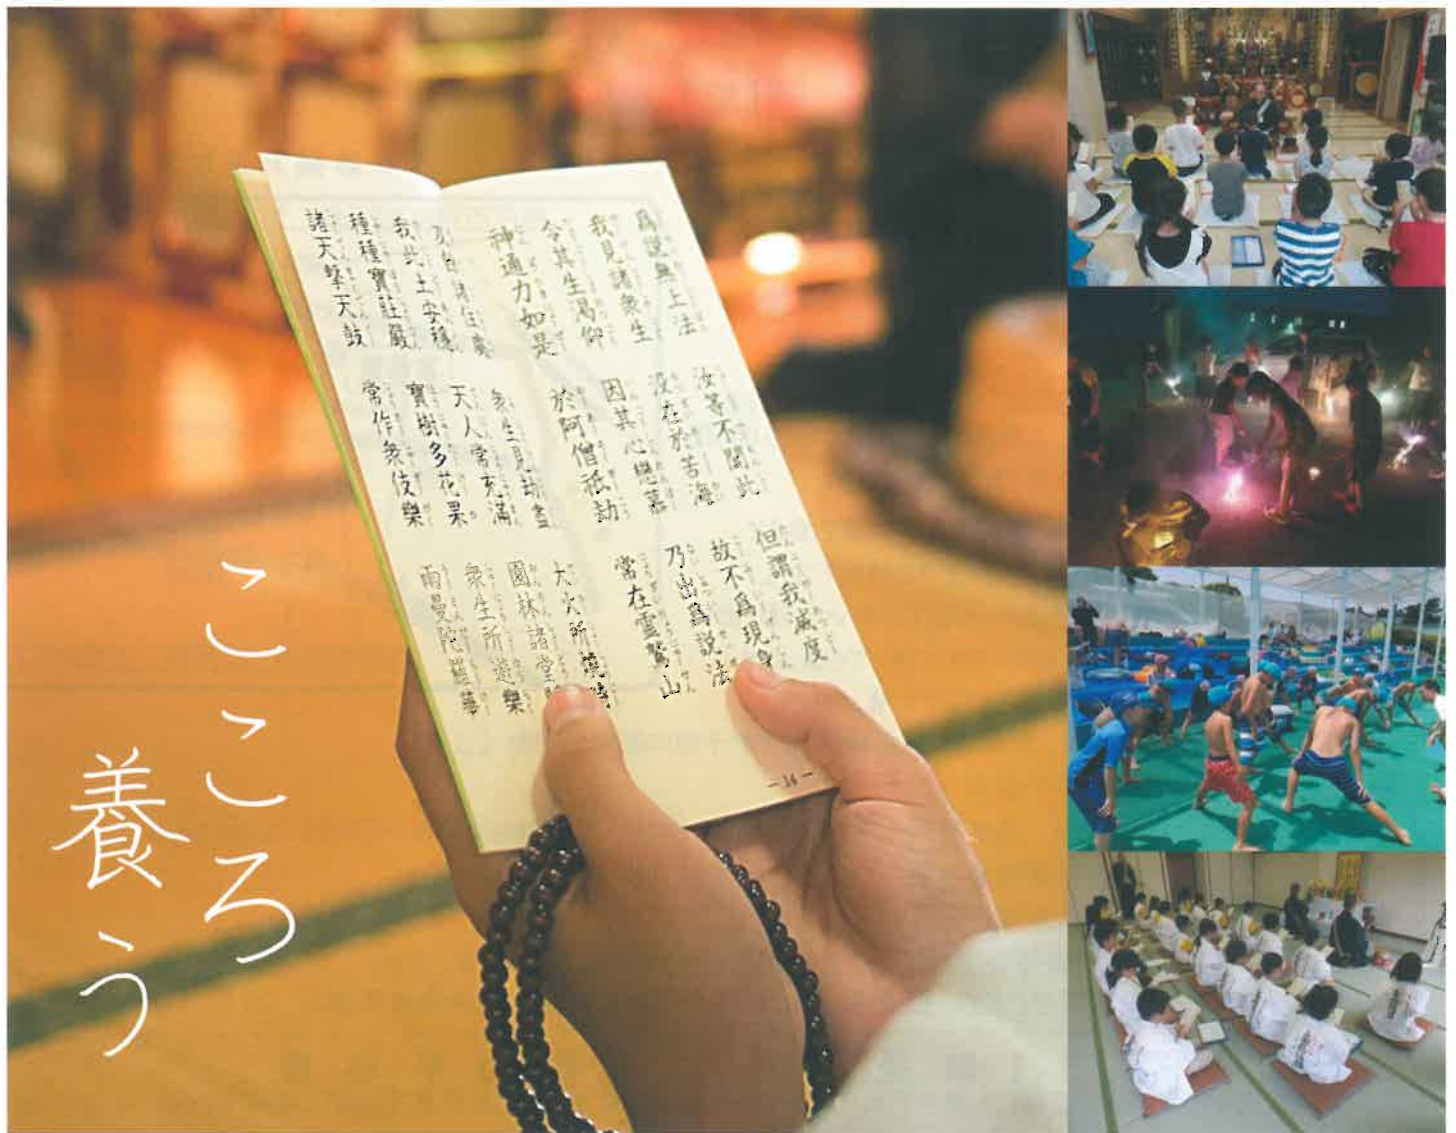 爲説無上法 汝等不聞此 但謂我滅度
我見諸衆生 没在於苦海 故不爲現身
令其生渇仰 因其心戀慕 乃出爲説法
神通力如是 於阿僧祇劫 常在霊鷲山
諸住處 衆生見劫盡 大火所燒時
我此土安穏 天人常充滿 園林諸堂
種種寶莊嚴 寶樹多花果 衆生所遊樂
諸天撃天鼓 常作衆伎樂 雨曼陀羅華
こころ
養う